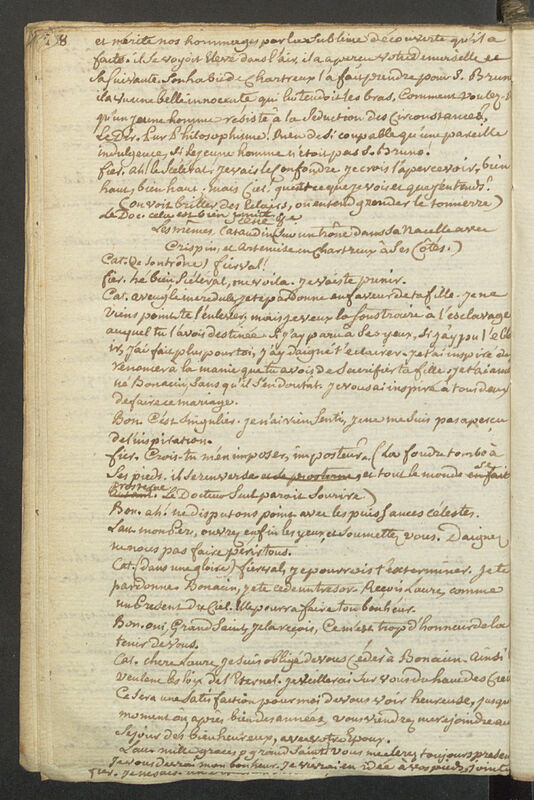 58
et mérite nos hommages par la sublime découverte qu'il a
faite. il se voyoit élevé dans l'air, il a aperçu votre demoiselle et
sa suivante. Son habit de Chartreux l'a fait prendre pour S. Bruno
il a vu une belle innocente qui lui tendoit les bras, Comment voulez-v
qu'un jeune homme résiste à la séduction des Circonstances?
Le Doc. Pur Philosophisme! Rien de si coupable qu'une pareille
indulgence, Si le jeune homme n'étoit pas S. Bruno!
fier. ah! le Scélérat, je vais le Confondre, je crois l'apercevoir, bien
haut, bien haut. mais Ciel! qu'est ce que je vois et que j'entends!
(on voit briller des Eclairs, on entend gronder le tonnerre)
Le Doc. cela est bien imité.
Scène
Les mêmes, Cataudin (sur un trône dans sa Nacelle avec
Crispin, et Artemise en Chartreux à ses Côtes.)
Cat. de son trône) fierval!
fier. hé bien, Scélérat, me voila. je vais te punir.
Cat. aveugle incredule, je te pardonne en faveur de ta fille. je ne
viens point te l'enlever, mais je veux la soustraire à l'esclavage
auquel tu l'avois destinée. Si j'ay paru à ses yeux, Si j'ay pu l'eblo
ir, j'ai fait plus pour toi, j'ay daigné t'eclairer. je t'ai inspiré de
renoncer à la manie que tu avois de Sacrifier ta fille. je t'ai ame
né Bonacin, sans qu'il s'en doutat. je vous ai inspiré à tous deux
de faire ce mariage.
Bon. C'est singulier. je n'ai rien senti, je ne me suis pas aperçu
de l'inspiration.
fier. Crois-tu m'en imposer, imposteur. (La foudre tombe à
Ses pieds. il se renverse et se prosterne, et tout le monde en fait
prosterne
autant. Le Docteur seul paroit Sourire)
Bon. ah! ne disputons point avec les puissances célestes.
Lau. mon Pere, ouvrez enfin les yeux, et soumettez vous. Daignez
ne nous pas faire périr tous.
Cat. (dans une gloire) fierval, je pourrois t'exterminer. je te
pardonne. Bonacin, je te cede un tresor. Reçois Laure, comme
un Present du Ciel. elle pourra faire ton bonheur.
Bon. oui, Grand Saint, je la reçois, Ce m'est trop d'honneur de la
tenir de vous.
Cat. chere Laure, je suis obligé de vous Céder à Bonacin. Ainsi
veulent les loix de l'Eternel. je veillerai sur vous du haut des Cieu
Ce sera une satisfaction pour moi de vous voir heureuse, jusqu
moment ou après bien des années, vous viendrez, me rejoindre au
séjour des bienheureux, avec votre Epoux.
Lau. mille graces, grand Saint! vous me serez toujours présen
Je vous devrai mon bonheur. Je vivrai en idée à vos pieds, Sainte
fier. je ne sais